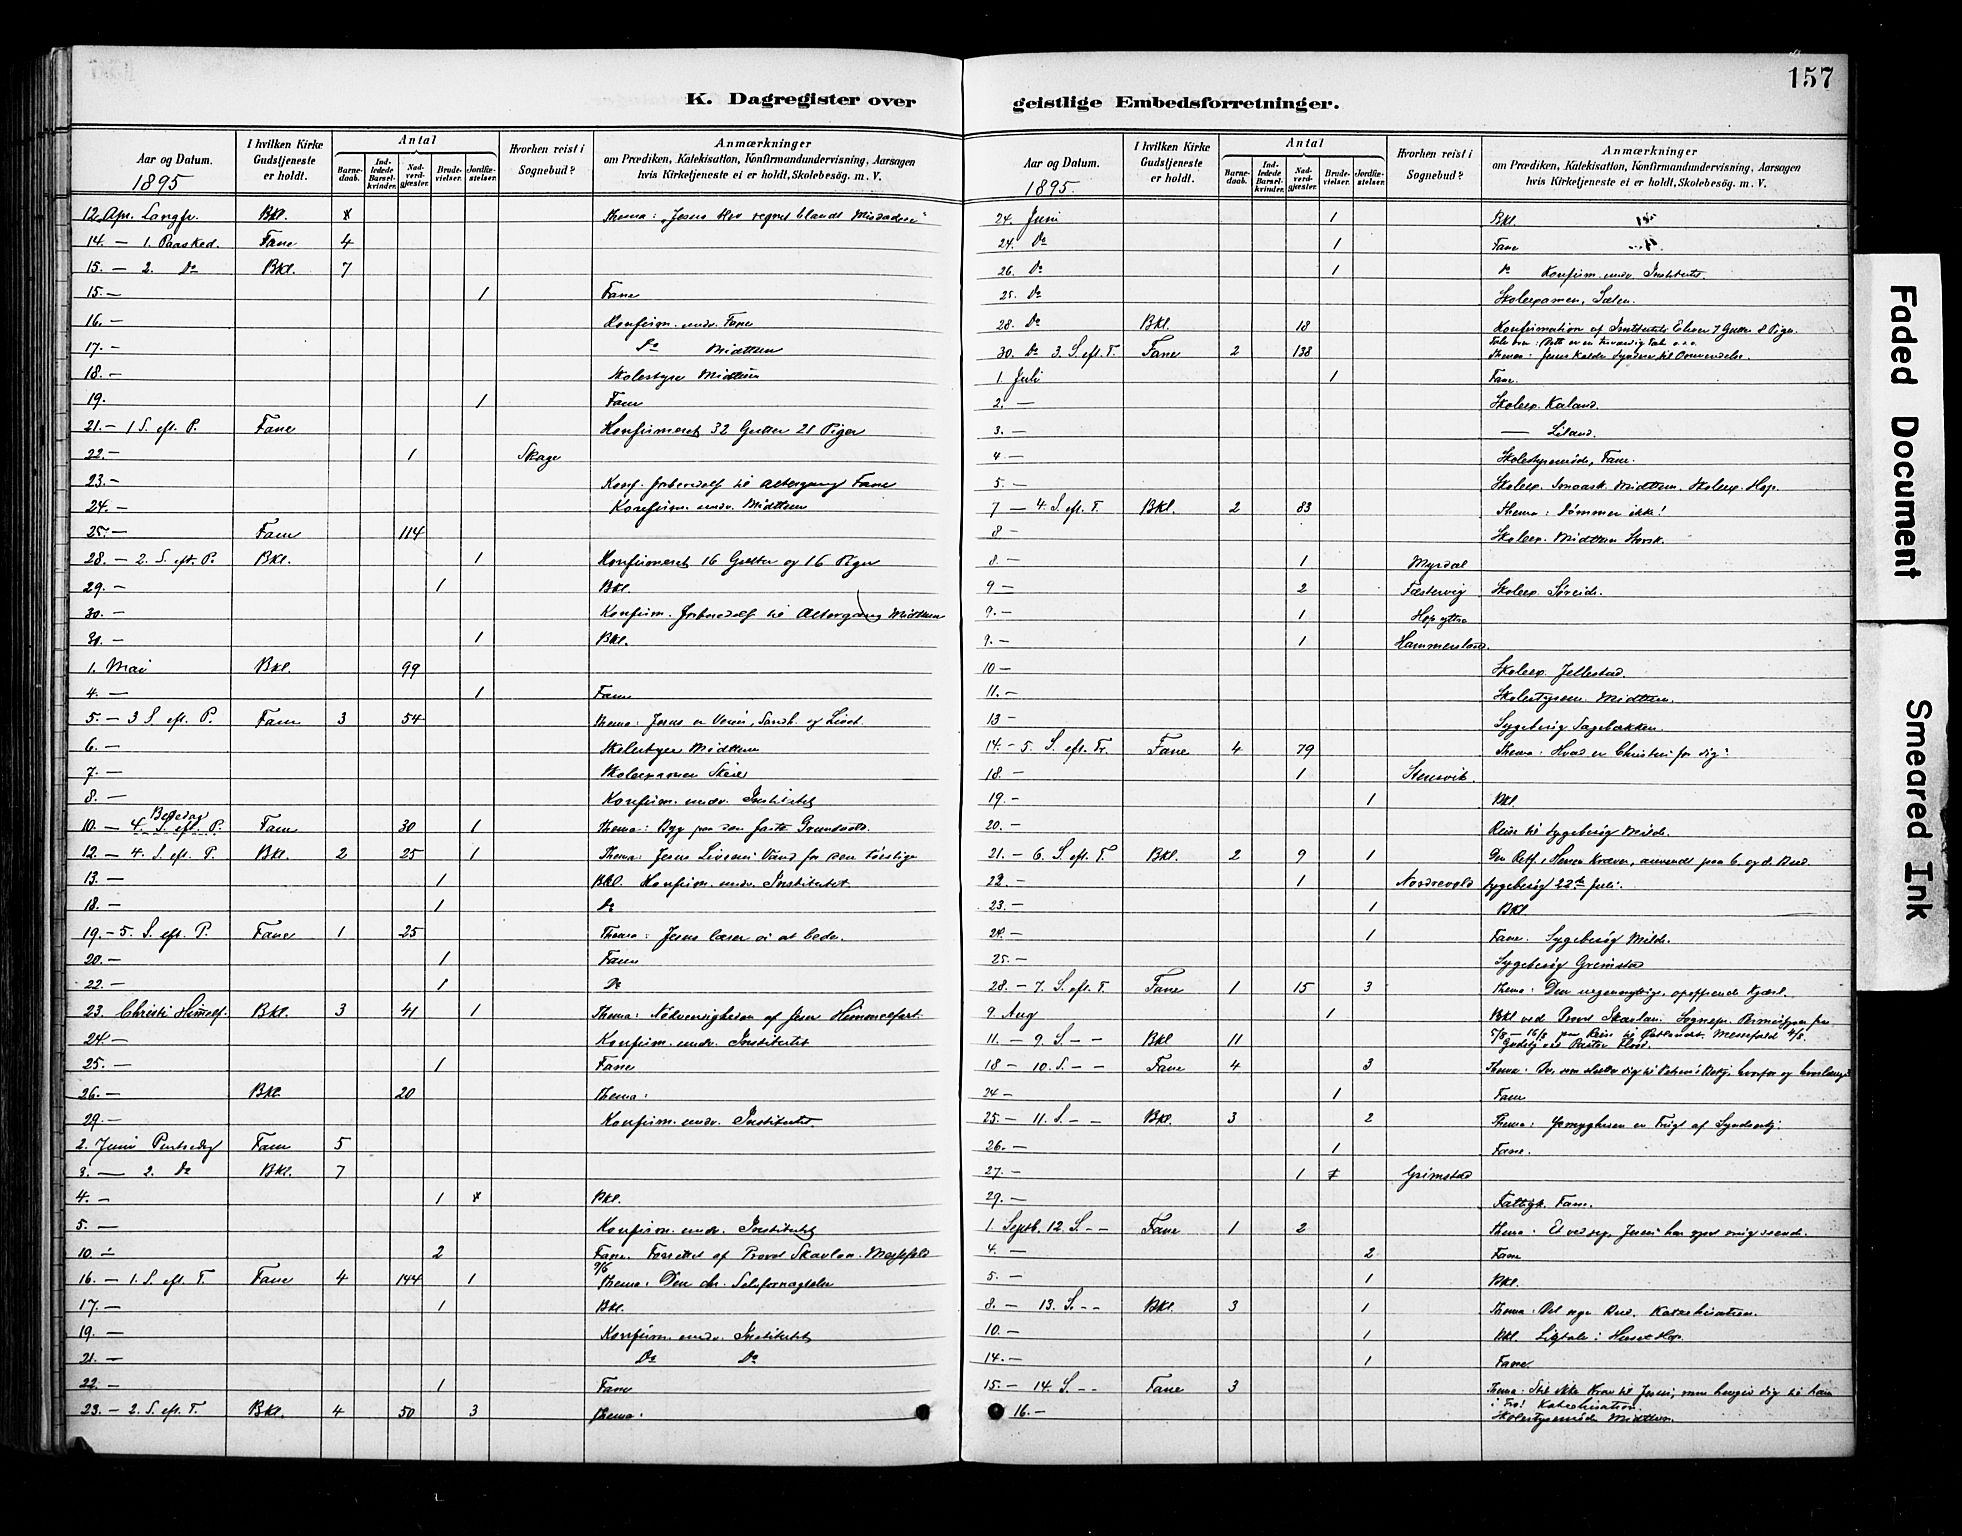 157
K. Dagregister over geistlige Embedsforretninger.
Aar og Datum. I hvilken Kirke Gudstjeneste er holdt. Antal Barnedaab. Indledede Barselkvinder. Nadverdgjæster. Brudevielser. Jordfæstelser. Hvorhen reist i Sognebud? Anmærkninger om Prædiken, Katekisation, Konfirmandundervisning, Aarsagen hvis Kirketjeneste ei er holdt, Skolebesög. m. V.
1895
12. Apr. Langfr. Bkl. Thema: "Jesus blev regnet blandt Misdædere"
14. — 1. Paasked. Fane 4
15. — 2. Do Bkl. 7
15. — 1 Fane
16. — Konfirm. undv. Fane
17. — Do Midttun
18. — Skolestyre Midttun
19. 1 Fane
21. — 1 S. eft. P. Fane Konfirmeret 32 Gutter 21 Piger
22. — 1 Skage
23. — Konf. forberedelse til Altergang Fane
24. — Konfirm. undv. Midttun
25. — Fane 114
28. — 2. S. eft. P. Bkl. 1 Konfirmeret 16 Gutter og 16 Piger
29. — 1 Bkl.
30. — Konfirm. forberedelse til Altergang Midttun
30. — 1 Bkl.
1. Mai Bkl. 99
4. — 1 Fane
5. — 3 S. eft. P. Fane 3 54 Thema: Jesus er Veien, Sandh. og Livet.
6. — Skolestyre Midttun
7. — Skoleexamen Steie
8. — Konfirm. undv. Institutet
Bededag
10. — 4. S. eft. P. Fane 30 1 Thema: Byg paa den faste Grundvold.
12. — 4. S. eft. P. Bkl. 2 25 1 Thema: Jesus Livsens Vand for den tørstige
13. — 1 Bkl. Konfirm. undv. Institutet.
18. — 1 Do
19. — 5. S. eft. P. Fane 1 25 Thema: Jesus lærer os at bede.
20. — 1 Fane
22. — 1 Do
23. Christi Himmelf. Bkl. 3 41 1 Thema: Nødvendigheden af Jesu Himmelfart.
24 — Konfirm. undv. Institutet
25. — 1 Fane
26. — Bkl. 20 Thema:
29. — Konfirm. undv. Institutet
2. Juni Pintsedag Fane 5
3. — 2. Do Bkl. 7
4. — 1 Bkl.
5. — Konfirm. undv. Institutet
10. — 2 Fane. Forrettet af Provst Skavlan. Messefald
9/6
16. — 1. S. eft. T. Fane 4 144 1 Thema: Den chr. Selvfornægtelse
17. — 1 Bkl.
19. — Konfirm. undv. Institutet
21. — Do Do
22. — 1 Fane
23. — 2. S. eft. T. Bkl. 4 50 3 Thema:
Aar og Datum. I hvilken Kirke Gudstjeneste er holdt. Antal Barnedaab. Indledede Barselkvinder. Nadverdgjæster. Brudevielser. Jordfæstelser. Hvorhen reist i Sognebud? Anmærkninger om Prædiken, Katekisation, Konfirmandundervisning, Aarsagen hvis Kirketjeneste ei er holdt, Skolebesög. m. V.
1895
24. Juni 1 Bkl.
24. Do 1 Fane
26. Do 1 Do Konfirm. undv. Institutet.
25. Do Skoleexamen, Sælen.
28. Do Bkl. 18 Konfirmation af Institutets Elever 7 Gutter 8 Piger.
30. Do 3. S. eft. T. Fane 2 138 Thema: Jesus kalder Syndere til Omvendelse.
1. Juli 1 Fane.
2. — Skoleex. Kaland.
3. — — Liland.
4 — Skolestyremøde, Fane.
5. — Skoleex. Smaask. Midttun. Skoleex. Hop.
7 — 4. S. eft. T. Bkl. 2 83 Thema: Dømmer ikke!
8 — Skoleex. Midttun Storsk.
8. — 1 Myrdal
9 — 2 Fæstervig Skoleex. Søreide.
9. — 1 Hop yttre
9. — 1 Hammersland.
10 — Skoleex. Jellestad.
11. — Skolestyrem. Midttun.
13 — Sygebesøg Sagebakken.
14. — 5. S. eft. Tr. Fane 4 79 Thema: Hvad er Christus for dig?
18. — 1 Stensvik.
19. — 1 Bkl.
20. — Reise til Sygebesøg Milde.
21. — 6. S. eft. T. Bkl. 2 9 1 Den Retf. Herren kræver, anvendt paa 6. og 8. Bud.
22. — 1 Nordrevold Sygebesøg 22de Juli.
23. — 1 Bkl
24. — 1 Fane. Sygebesøg Milde.
25. — Sygebesøg Grimstad
28. — 7. S. eft. T. Fane 1 15 3 Thema: Den uegennyttige, opoffrende Kjærl.
9. Aug 1 Bkl ved Provst Skavlan. Sognepr. fra
11. — 9. S. — — Bkl 11 5/8 — 16/8 paa Reise til Østlandet. Messefald 4/8.
Gudstj. ved Pastor
18 — 10. S. — — Fane 4 3 Thema:
24 — 1 Fane
25. — 11. S. — — Bkl. 3 2 Thema: Ydmygheden en Frugt af Syndserkj.
26. — 1 Fane.
27. — 1 Grimstad
29. — Fattigk. Fane.
1. Septb. 12 S. — — Fane 1 2 Thema: Et vidnesb. Jesus har gjort mig seende.
4. — 2 Fane
5. — 1 Bkl.
8. — 13. S. — — Bkl. 3 1 Thema: Det nye Bud. Katechisation.
10. — 1 Bkl. Ligtale i Huset Hop.
14. — 1 Fane.
15. — 14. S. — — Fane 3 Thema: Stil ikke Krav til Jesus, men hengiv dig til ham
i Tro! Katechisation.
16. — Skolestyremøde Midttun.
Faded Document
Smeared Ink